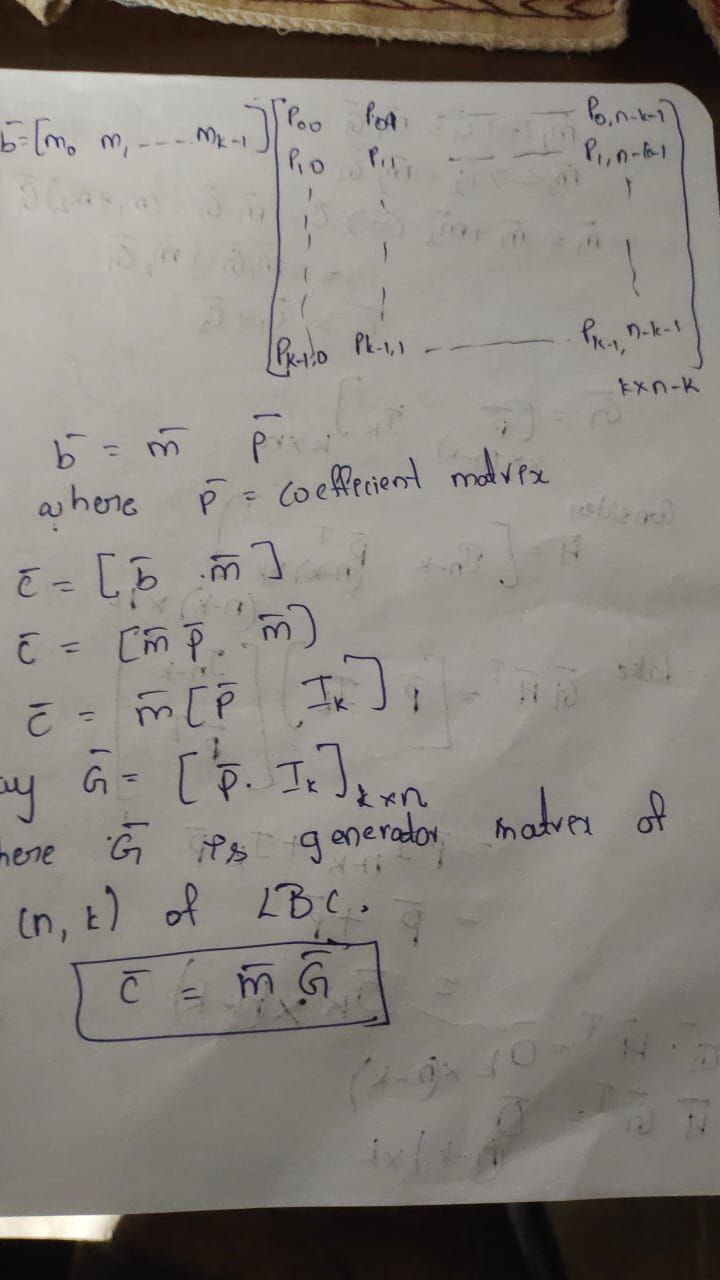 b̄=[m₀ m₁ ---- mₖ₋₁] [P₀₀ P₀₁ — — P₀,n-k-1
P₁₀ P₁,₁ — — P₁,n-k-1
Pₖ₋₁,₀ Pₖ₋₁,₁ ---- Pₖ₋₁,n-k-1]
k×n-k
b̄ = m̄ P̄
where P̄ = coefficient matrix
c̄ = [b̄ . m̄]
c̄ = [m̄ P̄. m̄]
c̄ = m̄[P̄ Iₖ].
ay Ḡ = [P̄. Iₖ]k×n
here Ḡ is generator matrix of
(n, k) of LBC.
c̄ = m̄ Ḡ